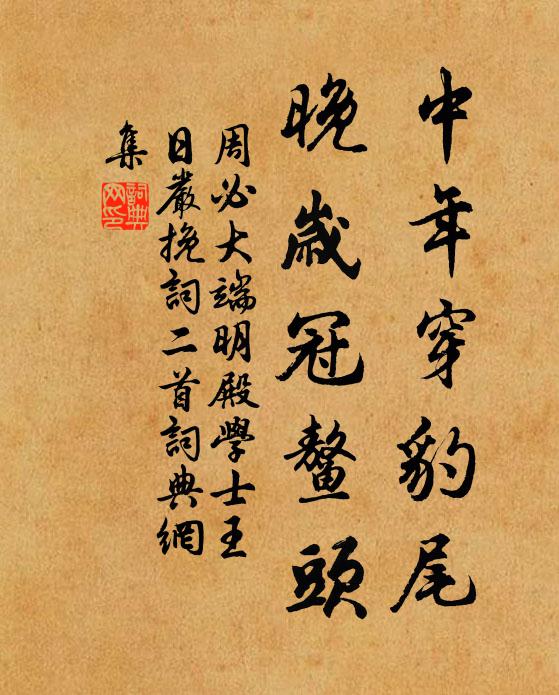 中年穿豹尾
晚歲冠鰲頭
周必大端明殿學士王
日嚴挽詞二首詞典網
集
詞典網印